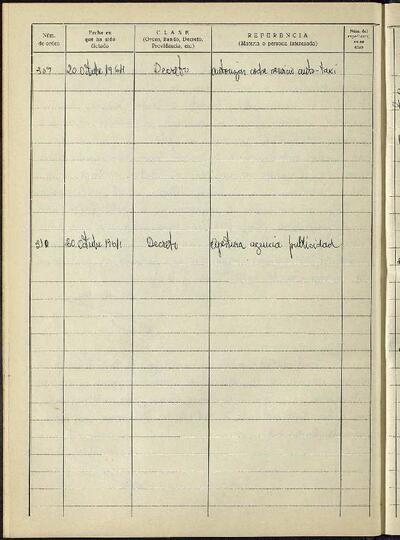 Núm. de orden
Fecha en que ha sido dictado
CLASE
(Orden, Bando, Decreto, Providencia, etc.)
REFERENCIA
(Materia o persona interesada)
Núm. del
309 20 Octubre 1961 Decreto coche servicio auto-taxi
310 20 Octubre 1961 Decreto Apertura agencia publicidad